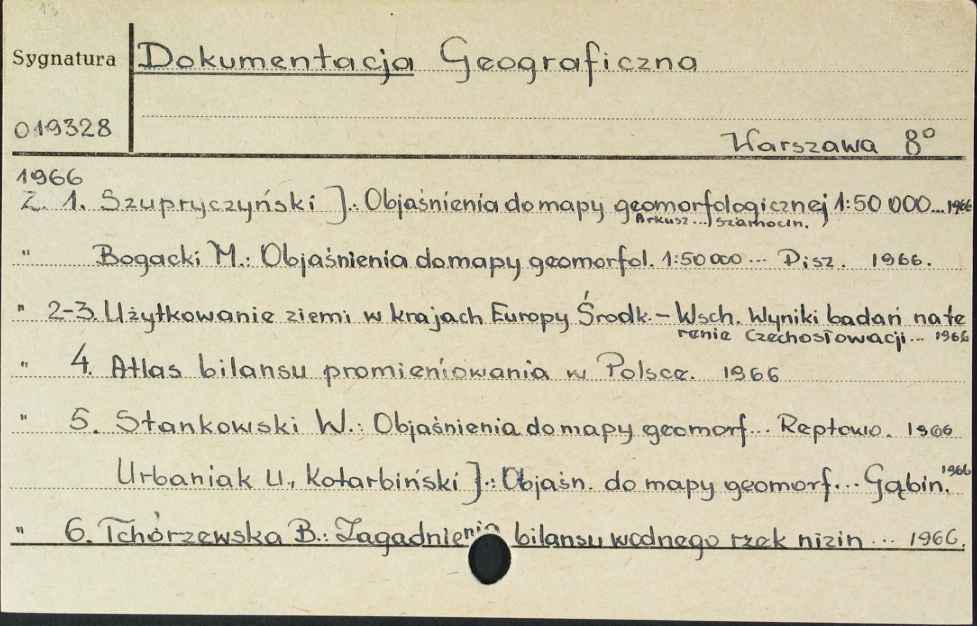 13
Sygnatura Dokumentacja Geograficzna
019328
Warszawa 8°
1966
Z. 1. Szupryczyński J.: Objaśnienia do mapy geomorfologicznej 1:50 000... 1966
Arkusz... Szamocin.
" Bogacki M.: Objaśnienia do mapy geomorfol. 1:50 000 ... Pisz. 1966.
" 2-3. Użytkowanie ziemi w krajach Europy Środk.-Wsch. Wyniki badań na te
renie Czechosłowacji... 1966
" 4. Atlas bilansu promieniowania w Polsce. 1966
" 5. Stankowski W.: Objaśnienia do mapy geomorf... Reptowo. 1966
Urbaniak U., Kotarbiński J.: Objaśn. do mapy geomorf... Gąbin. 1966
" 6. Tchórzewska B.: Zagadnienia bilansu wodnego rzek nizin ... 1966.